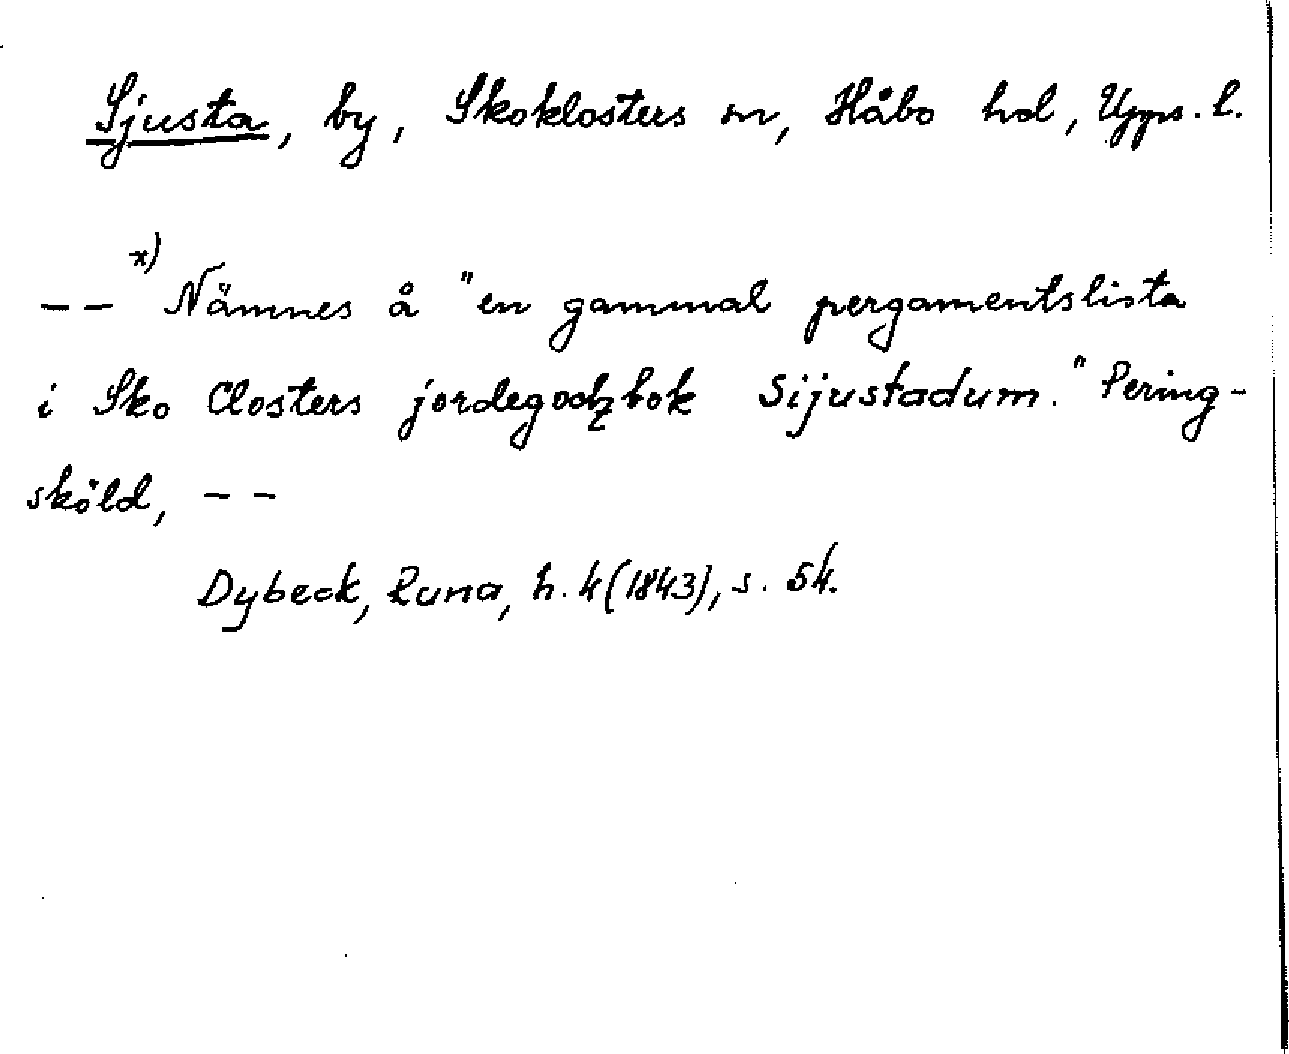 Sjusta, by, Skoklosters sn, Håbo hd, Upps. l.
-- x) Nämnes å "en gammal pergamentslista
i Sko Closters jordegodzbok Sijustadum." Pering-
sköld, --
Dybeck, Runa, h. 4 (1843), s. 54.